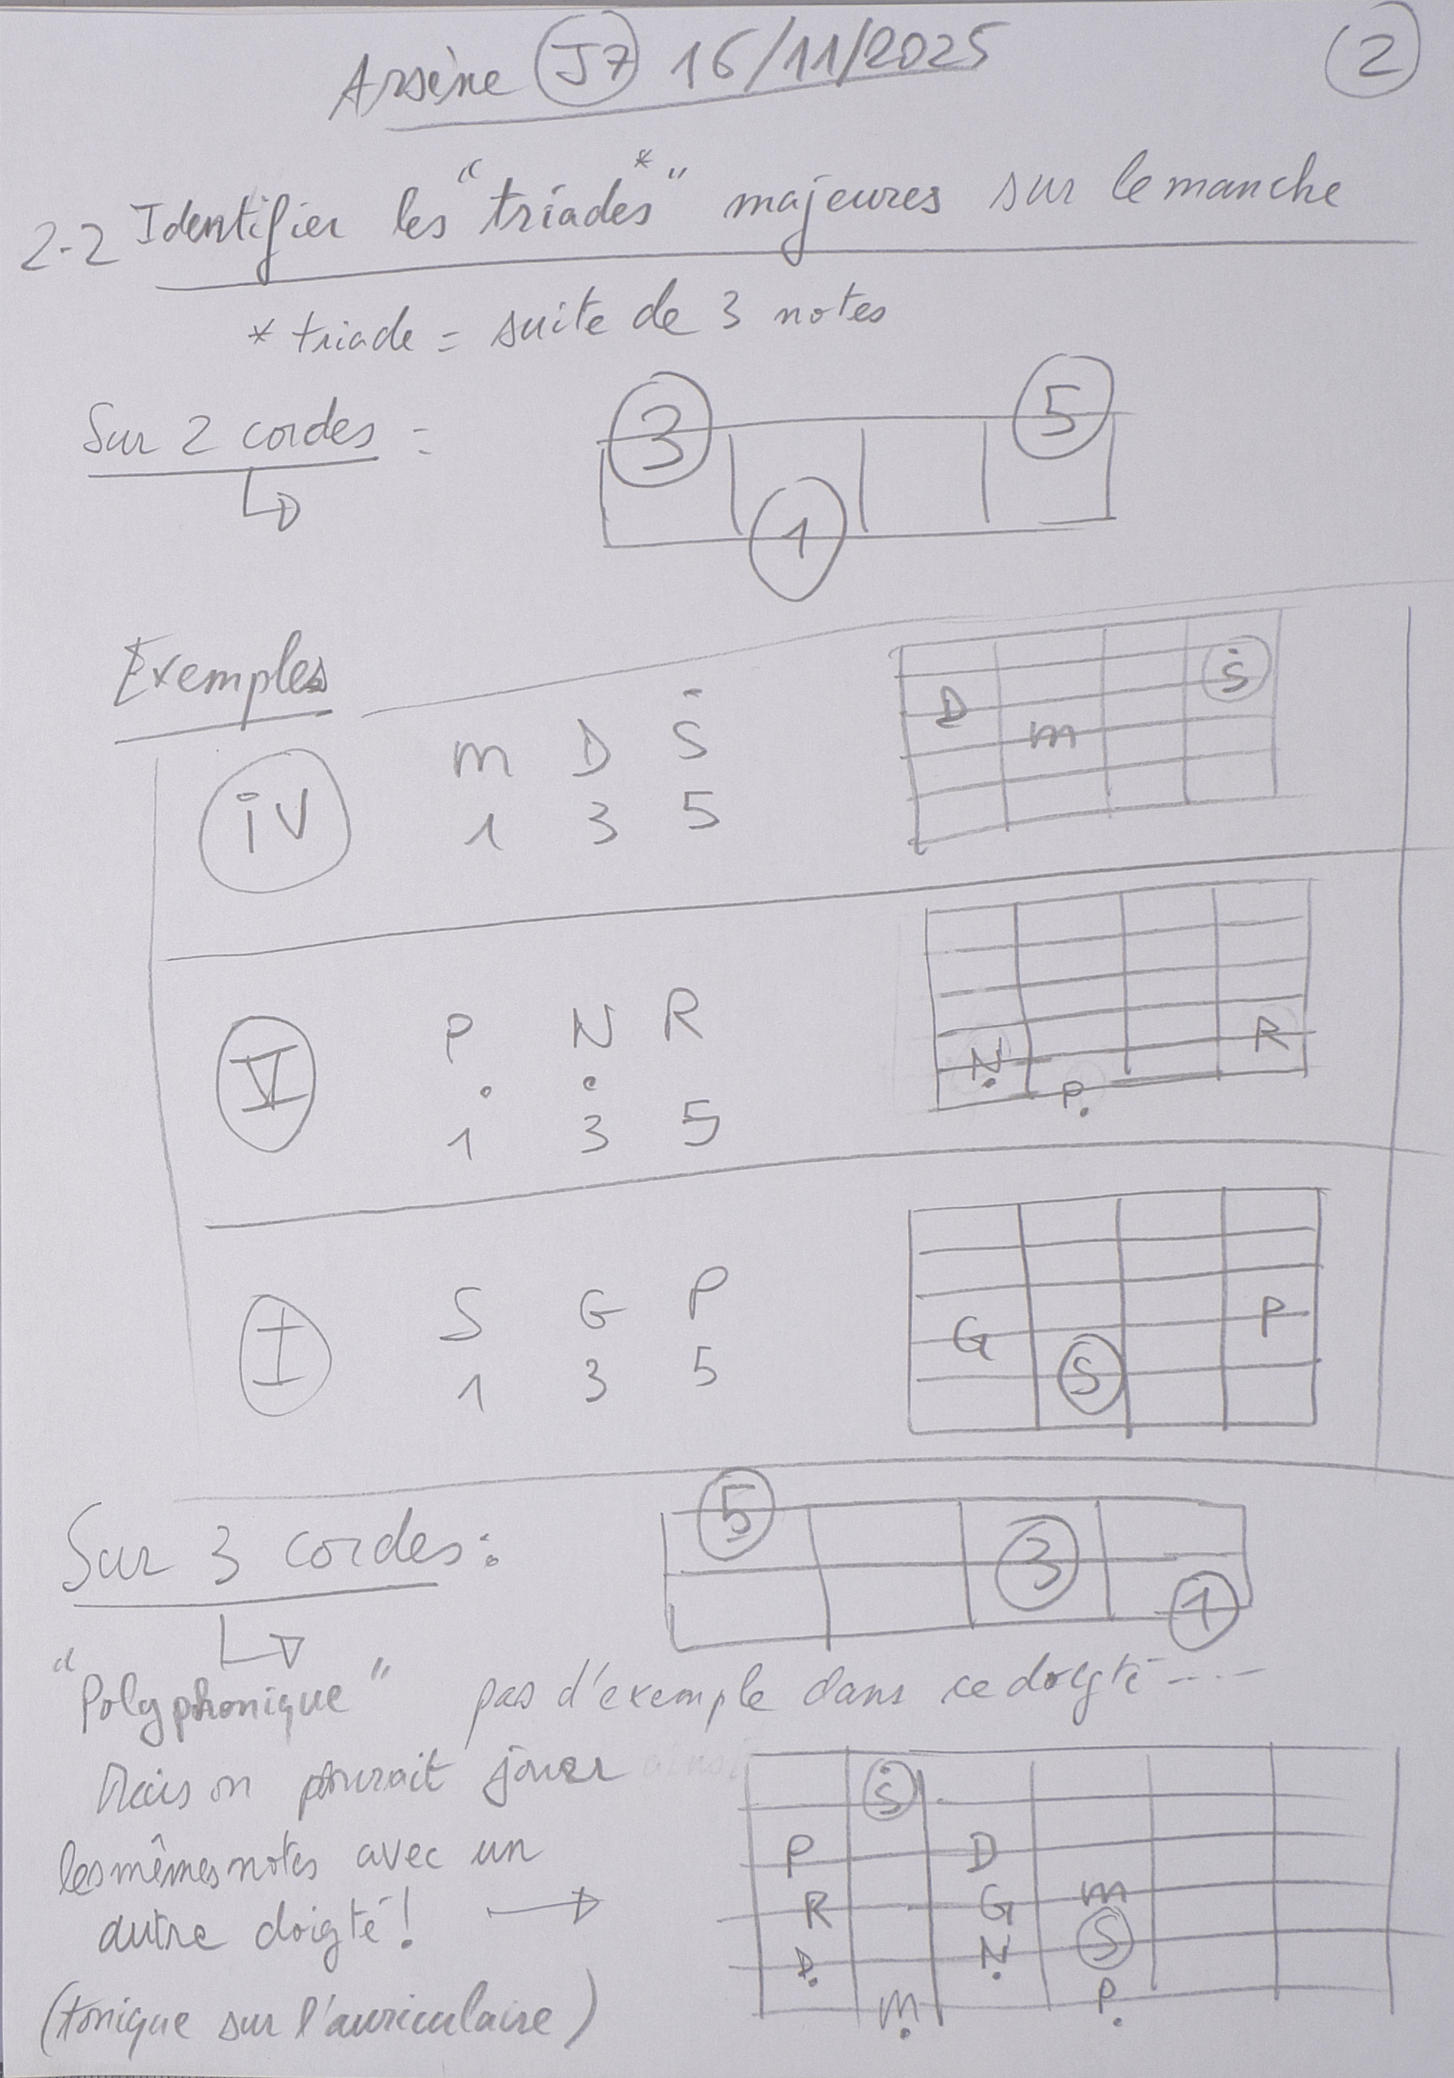 Arsène J7 16/11/2025 2
2-2 Identifier les "triades*" majeures sur le manche
* triade = suite de 3 notes
Sur 2 cordes =
3 5
1
Exemples
iv m D Ṡ
1 3 5
D m Ṡ
V Ṗ Ṇ R
1 3 5
Ṇ R
P.
I S G P
1 3 5
G S P
Sur 3 cordes:
5
3
1
"Polyphonique" pas d'exemple dans ce doigté ----
Mais on pourait jouer ainsi
les mêmes notes avec un
autre doigté! →
(tonique sur l'auriculaire)
Ṡ
P D
R G m
Ḍ Ṇ S
ṃ P.